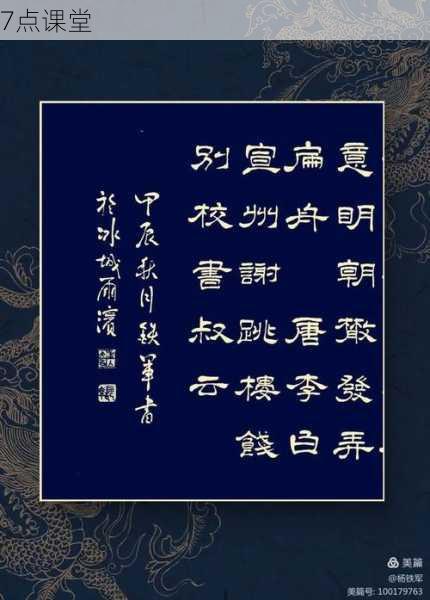 7点课堂
意明朝散發弄
扁舟 唐李白
宣州謝跳樓餞
别校書叔云
甲辰秋月鉄軍書
於冰城爾濱
美篇
@杨铁军
美篇号: 100179763